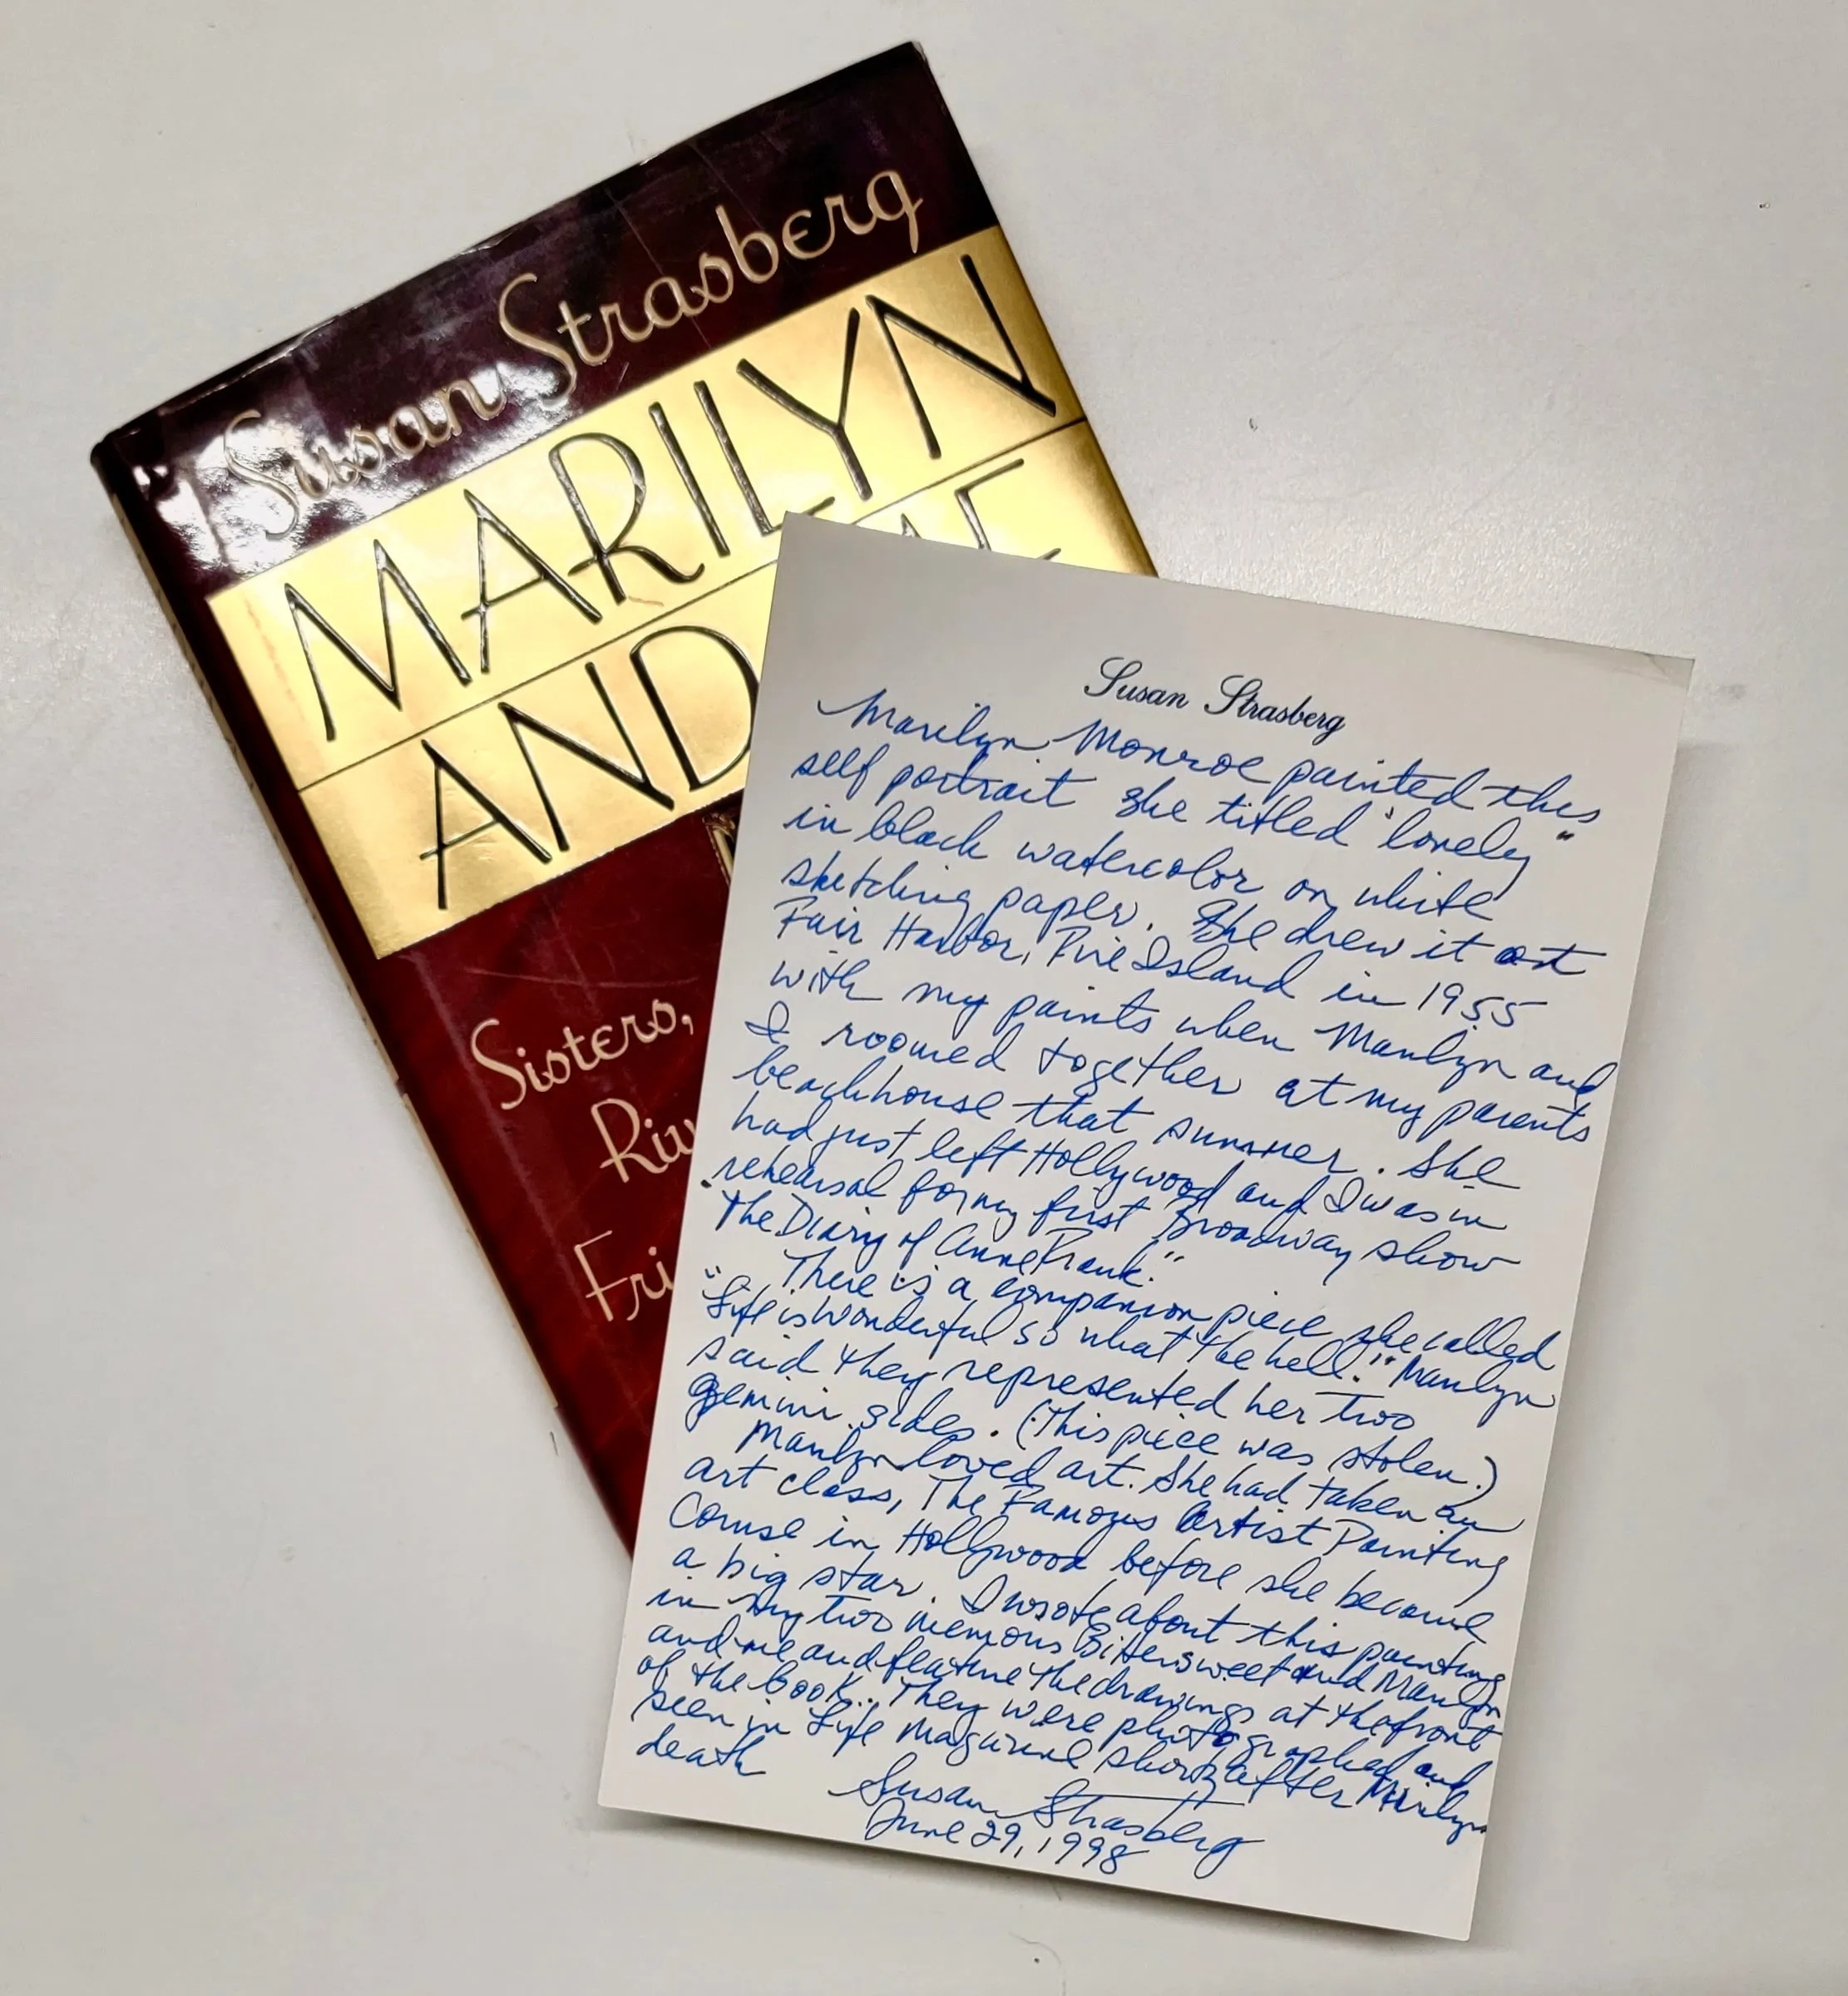 Susan Strasberg
MARILYN
AND ME
Sisters,
Riv
Fri
Susan Strasberg
Marilyn Monroe painted this
self portrait she titled "lonely"
in black watercolor on white
sketching paper. She drew it at
Fair Harbor, Fire Island in 1955
with my paints when Marilyn and
I roomed together at my parents
beachhouse that summer. She
had just left Hollywood and I was in
rehearsal for my first Broadway show
"The Diary of Anne Frank."
There is a companion piece she called
"Life is Wonderful so what the hell!" Marilyn
said they represented her two
gemini sides. (This piece was stolen.)
Marilyn loved art. She had taken an
art class, The Famous Artist Painting
Course in Hollywood before she became
a big star. I wrote about this painting
in my two memoirs Bittersweet and Marilyn
and me and feature the drawings at the front
of the book.. They were photographed and
seen in Life Magazine shortly after Marilyn's
death
Susan Strasberg
June 29, 1998